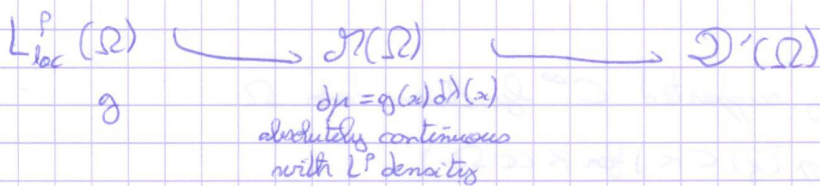 L^p_loc (Ω) ↪ M(Ω) ↪ D'(Ω)
g dμ = g(x)dλ(x)
absolutely continuous
with L^p density